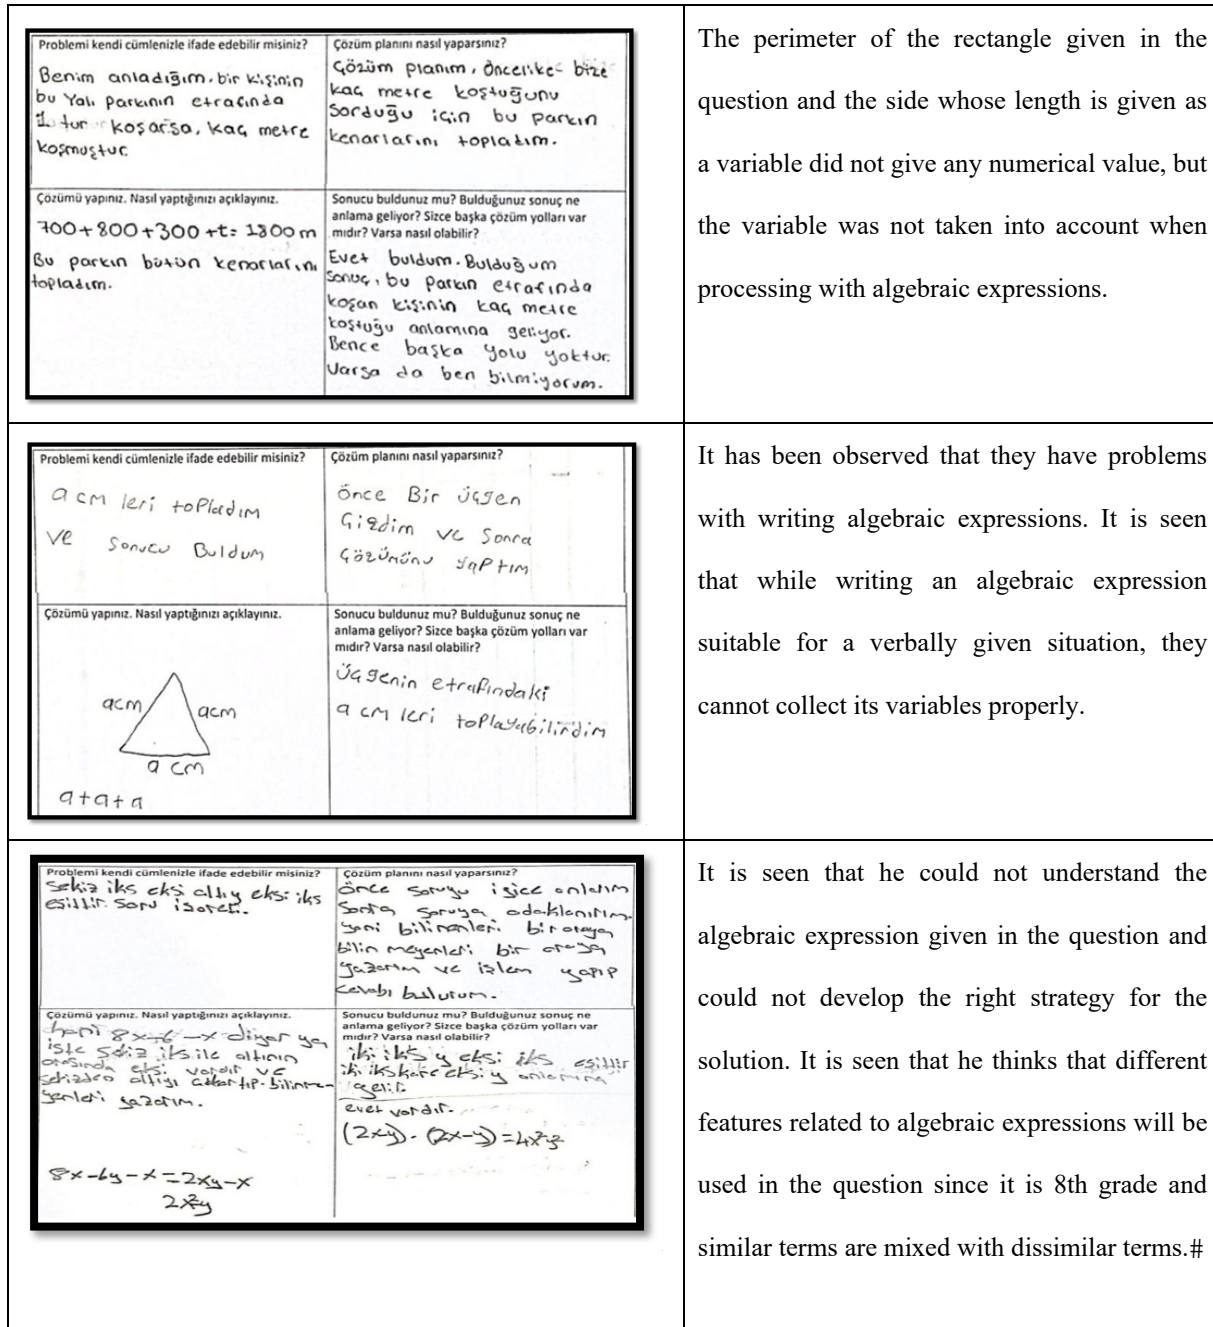 Problemi kendi cümlenizle ifade edebilir misiniz?
Benim anladığım, bir kişinin
bu Yalı Parkının etrafında
1 tur koşarsa, kaç metre
koşmuştur.
Çözüm planını nasıl yaparsınız?
Çözüm planım, öncelikle bize
kaç metre koştuğunu
sorduğu için bu parkın
kenarlarını topladım.
Çözümü yapınız. Nasıl yaptığınızı açıklayınız.
700+800+300+t= 1800 m
Bu parkın bütün kenarlarını
topladım.
Sonucu buldunuz mu? Bulduğunuz sonuç ne
anlama geliyor? Sizce başka çözüm yolları var
mıdır? Varsa nasıl olabilir?
Evet buldum. Bulduğum
sonuç, bu parkın etrafında
koşan kişinin kaç metre
koştuğu anlamına geliyor.
Bence başka yolu yoktur.
Varsa da ben bilmiyorum.
The perimeter of the rectangle given in the
question and the side whose length is given as
a variable did not give any numerical value, but
the variable was not taken into account when
processing with algebraic expressions.
Problemi kendi cümlenizle ifade edebilir misiniz?
a cm leri topladım
ve sonucu Buldum
Çözüm planını nasıl yaparsınız?
önce Bir üçgen
Çizdim ve Sonra
Çözümünü yaptım
Çözümü yapınız. Nasıl yaptığınızı açıklayınız.
acm
acm
a cm
a+a+a
Sonucu buldunuz mu? Bulduğunuz sonuç ne
anlama geliyor? Sizce başka çözüm yolları var
mıdır? Varsa nasıl olabilir?
Üçgenin etrafındaki
a cm leri toplayabilirdim
It has been observed that they have problems
with writing algebraic expressions. It is seen
that while writing an algebraic expression
suitable for a verbally given situation, they
cannot collect its variables properly.
Problemi kendi cümlenizle ifade edebilir misiniz?
sekiz iks eksi altıy eksi iks
eşittir soru işareti.
Çözüm planını nasıl yaparsınız?
önce soruyu iyice anlarım
sonra soruya odaklanırım
yani bilinenleri bir araya
bilinmeyenleri bir araya
yazarım ve işlem yapıp
cevabı bulurum.
Çözümü yapınız. Nasıl yaptığınızı açıklayınız.
hani 8x-6-x diyor ya
işte sekiz iks ile altının
arasında eksi vardır ve
sekizden altıyı çıkartıp bilinme-
yenleri yazarım.
8x-6y-x=2xy-x
2x²y
Sonucu buldunuz mu? Bulduğunuz sonuç ne
anlama geliyor? Sizce başka çözüm yolları var
mıdır? Varsa nasıl olabilir?
iki iks y eksi iks eşittir
iki iks kare eksi y anlamına
gelir.
evet vardır.
(2xy).(2x-y)=4x²y²
It is seen that he could not understand the
algebraic expression given in the question and
could not develop the right strategy for the
solution. It is seen that he thinks that different
features related to algebraic expressions will be
used in the question since it is 8th grade and
similar terms are mixed with dissimilar terms.#